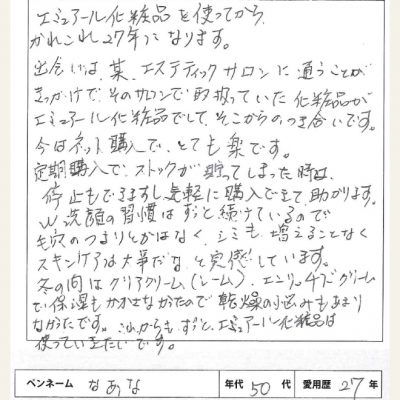 エミュアール化粧品を使ってから、
かれこれ27年になります。
出会いは、某、エステティックサロンに通うことが
きっかけで、そのサロンで取扱っていた化粧品が
エミュアール化粧品でして、そこからのつき合いです。
今はネット購入で、とても楽です。
定期購入で、ストックが貯ってしまった時は、
停止もできますし、気軽に購入できて、助かります。
W洗顔の習慣はずっと続けているので
毛穴のつまりとかはなく、シミも増えることなく
スキンケアは大事だな、と実感しています。
冬の間はクリアクリーム、エンリッチドクリーム
で保湿もかかさなかったので乾燥の悩みもあまり
なかったです。これからもずっと、エミュアール化粧品は
使っていきたいです。
ペンネーム なあな 年代 50代 愛用歴 27年